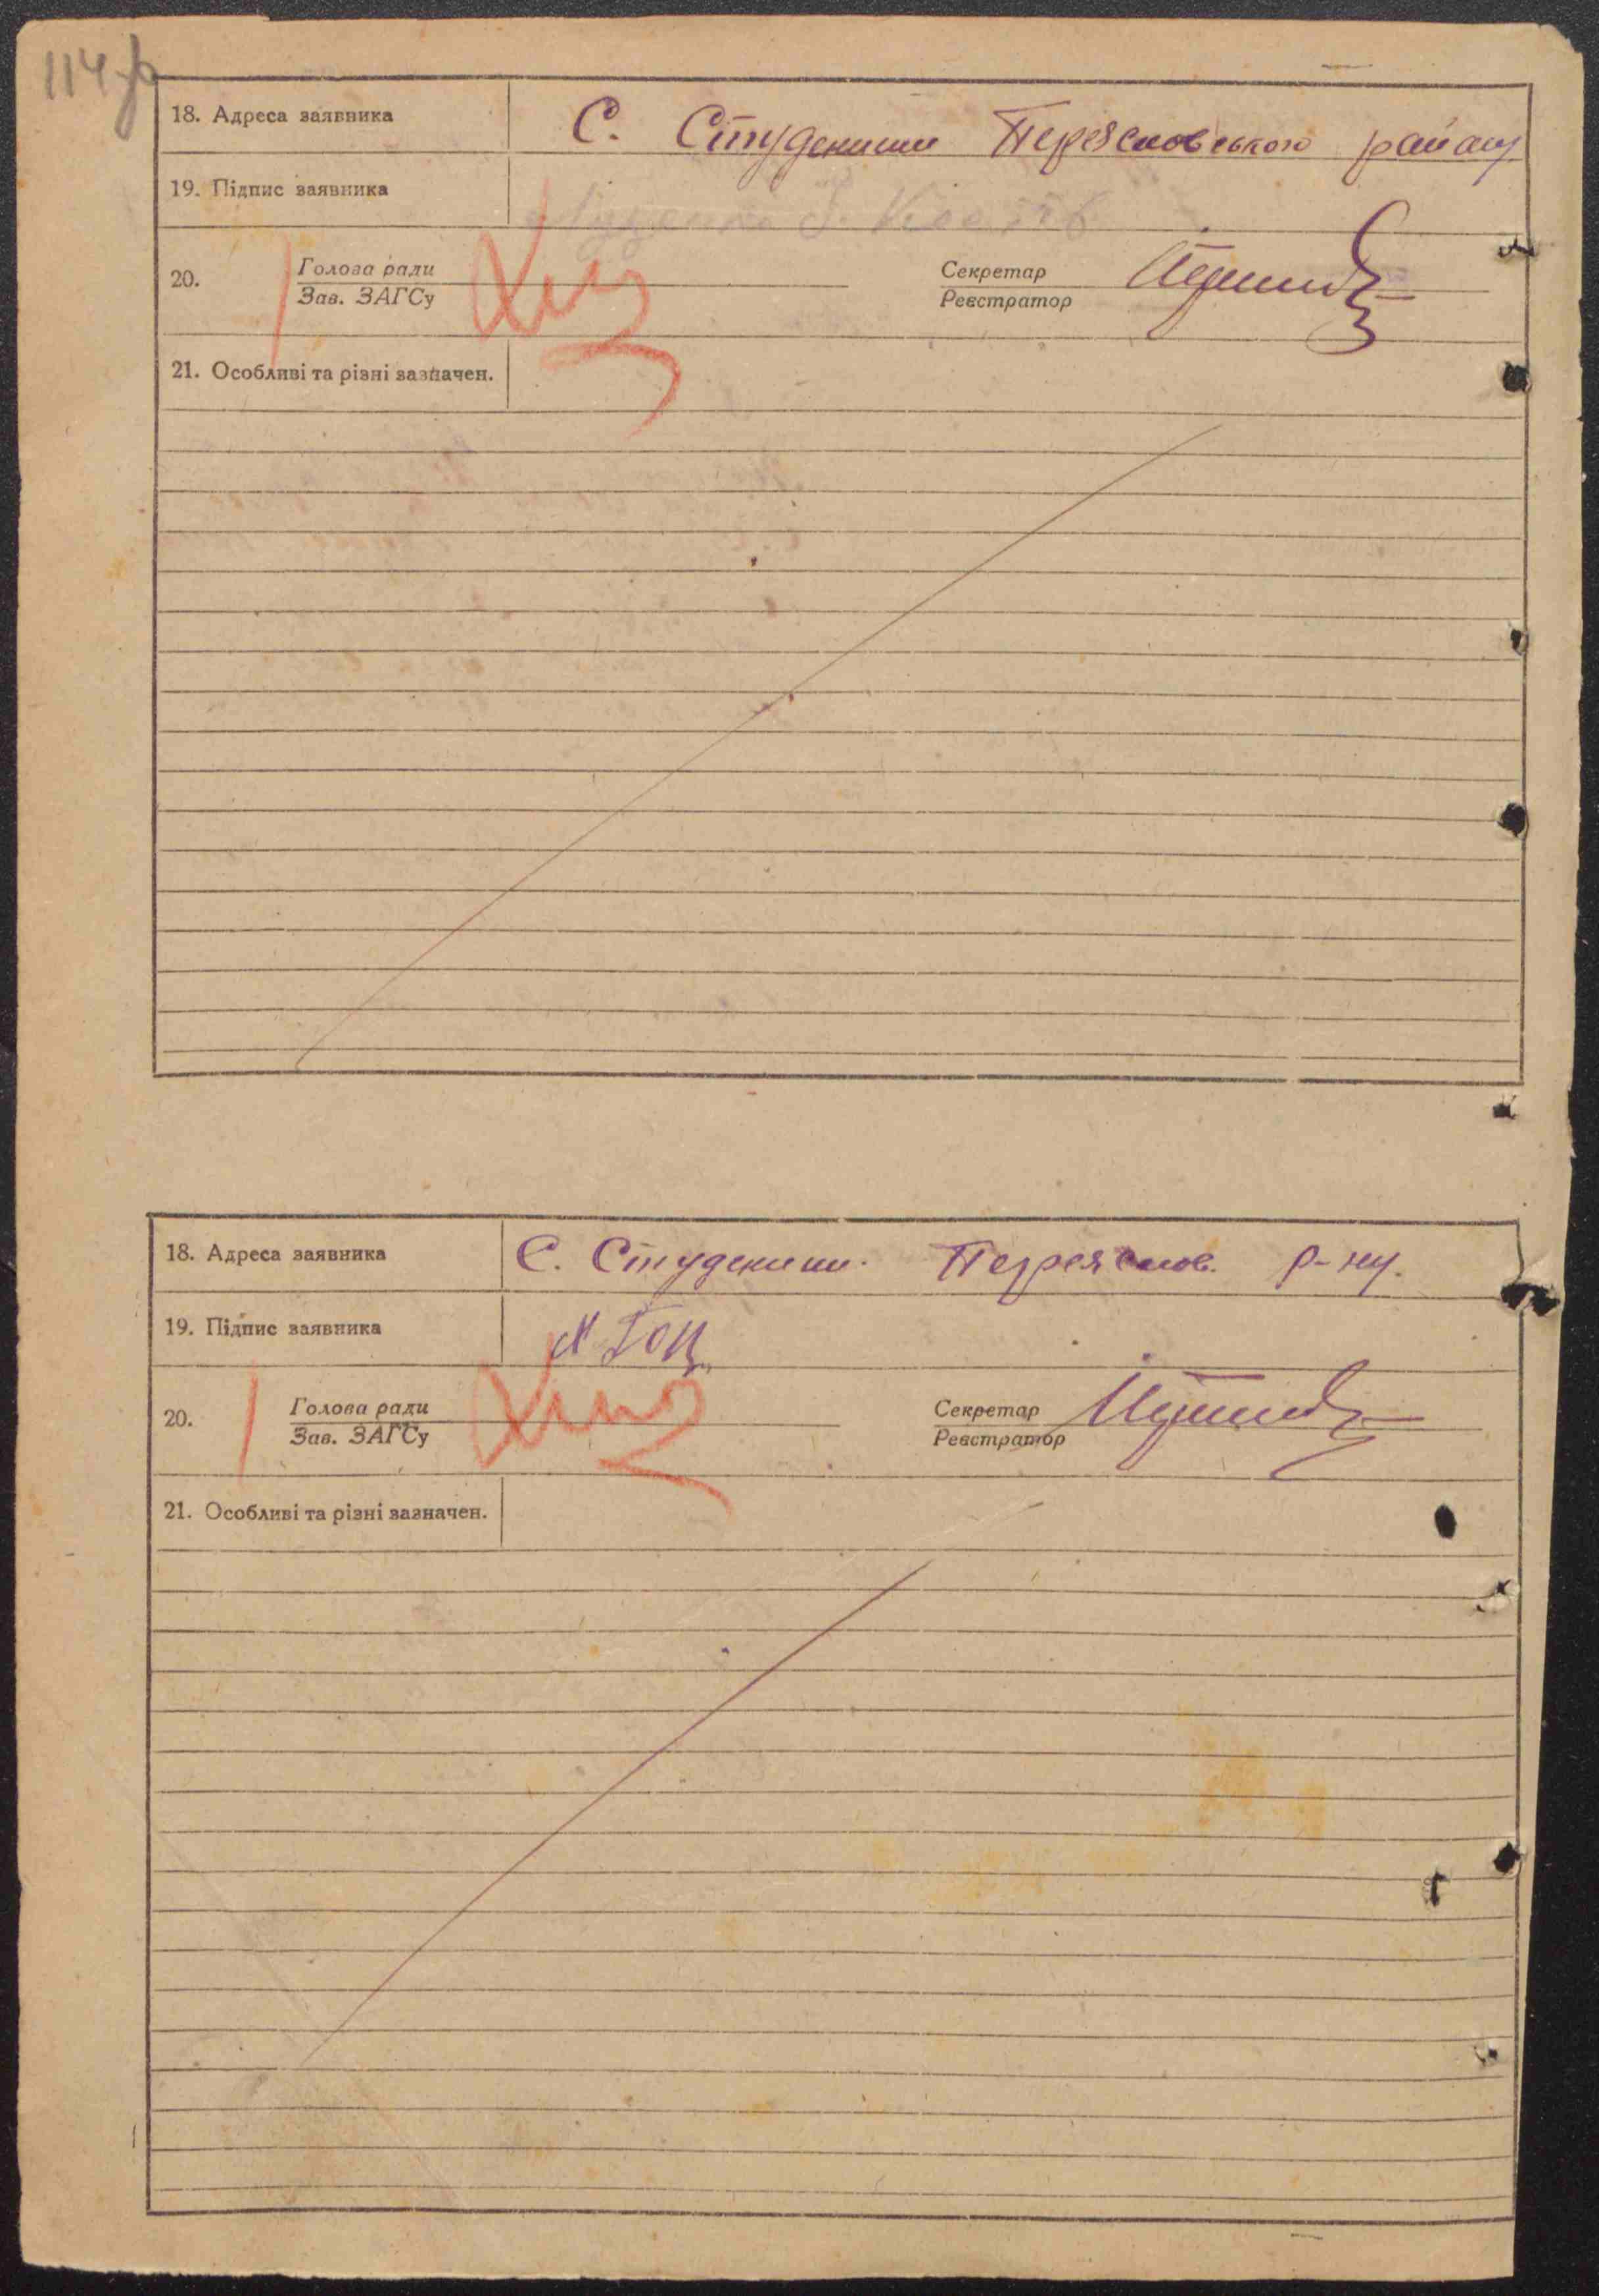 114
18. Адреса заявника С. Студеники Переяславського району
19. Підпис заявника
20. Голова ради Секретар
Зав. ЗАГСу Реєстратор
21. Особливі та різні зазначен.
18. Адреса заявника С. Студеники. Переяслов. р-ну.
19. Підпис заявника
20. Голова ради Секретар
Зав. ЗАГСу Реєстратор
21. Особливі та різні зазначен.